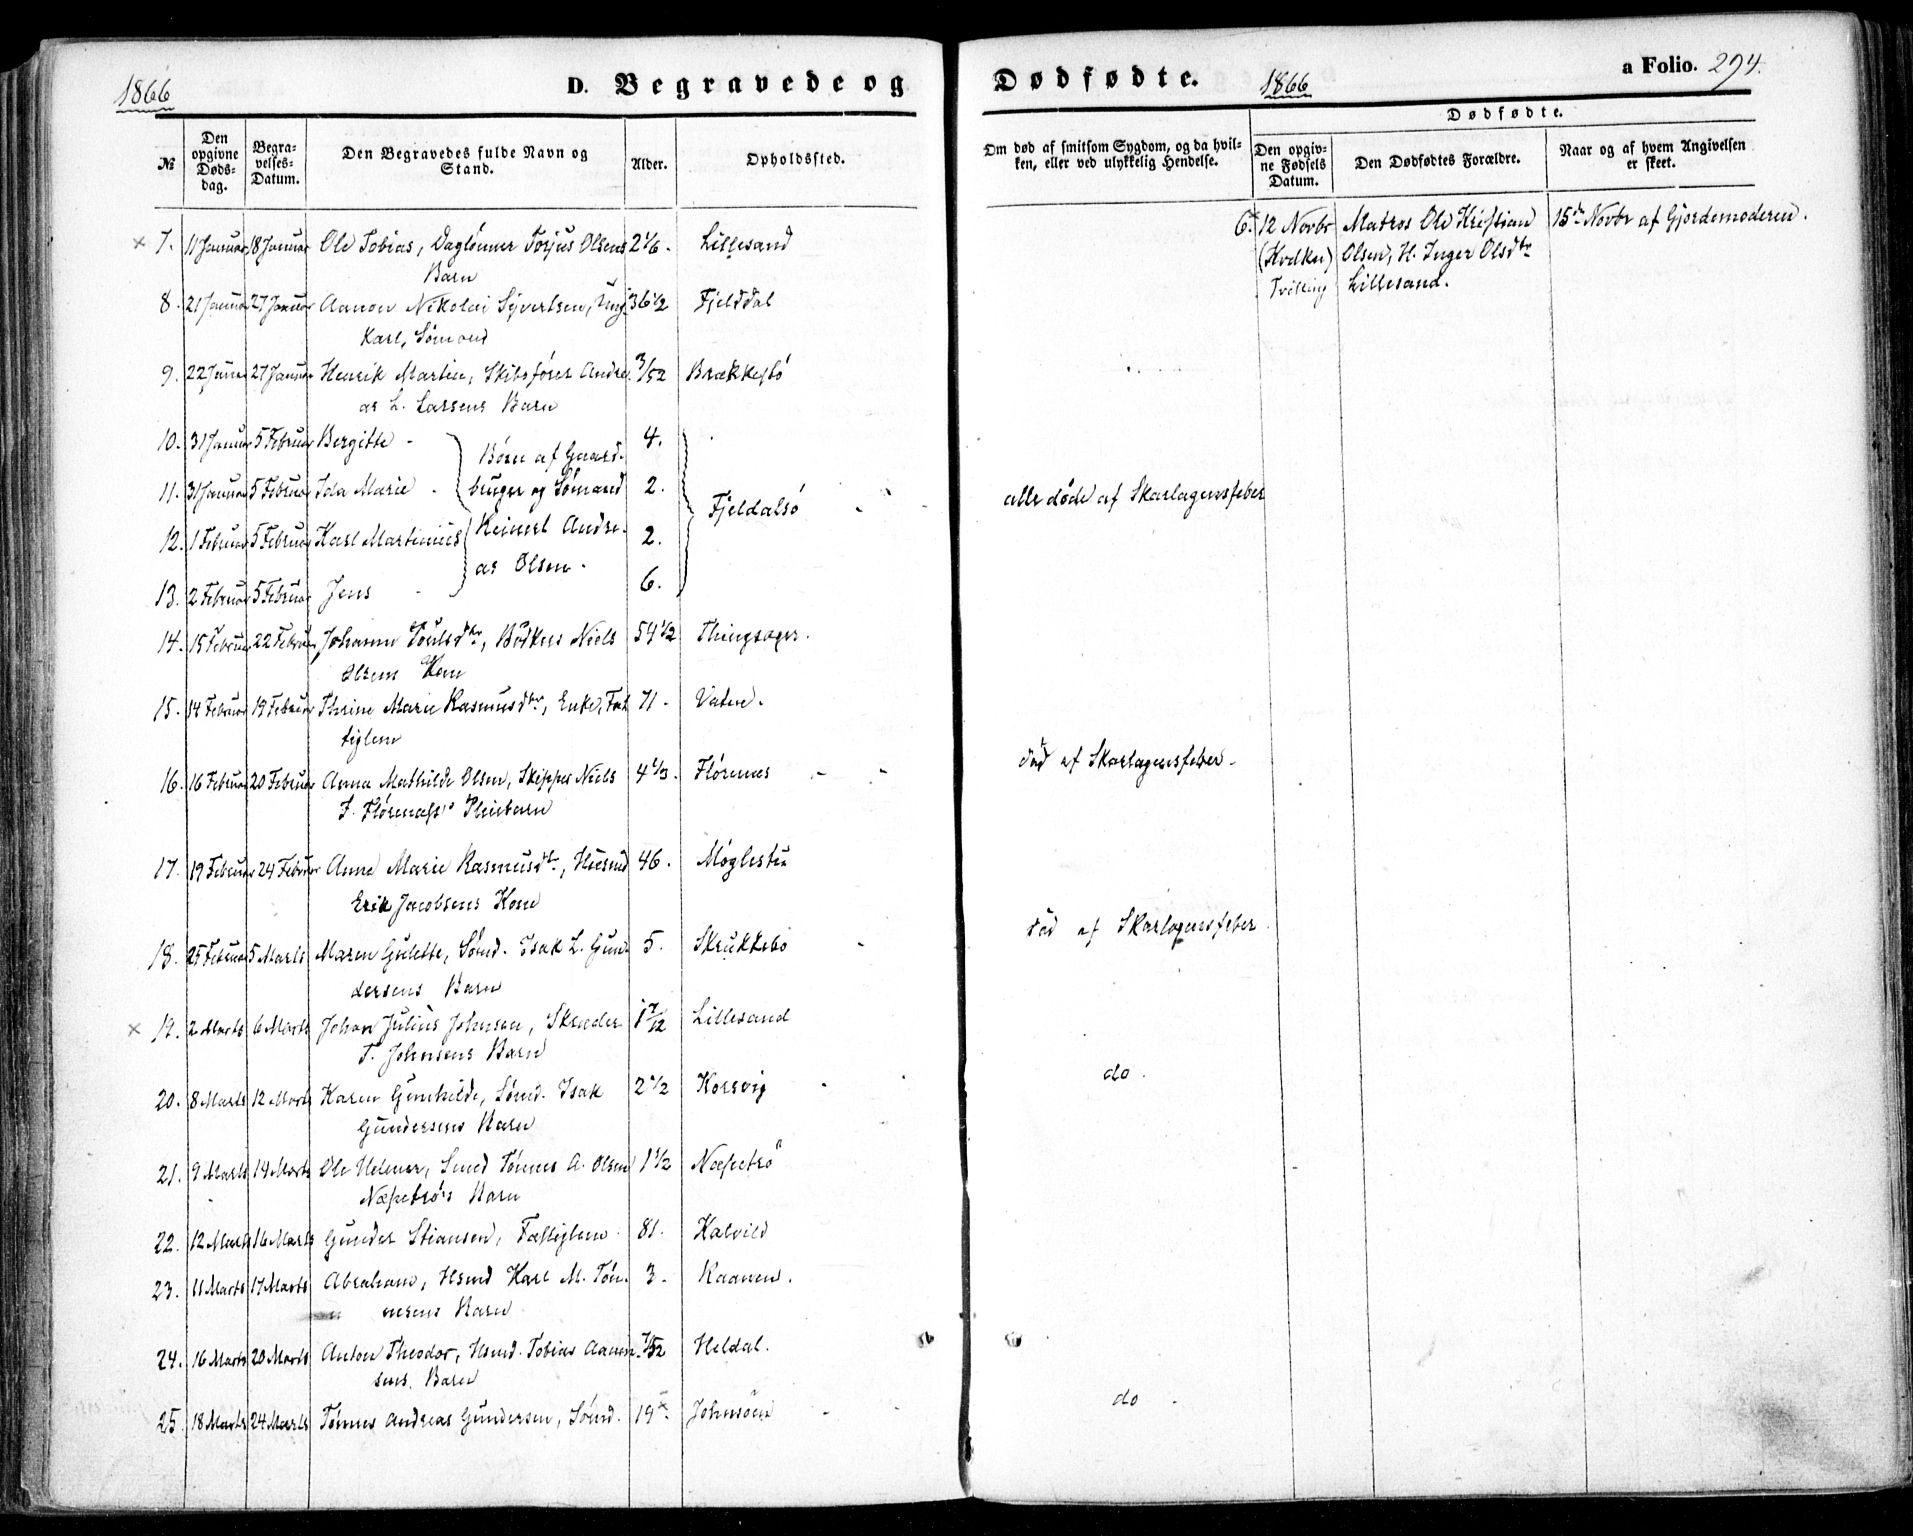 1866
D. Begravede og Dødfødte.
1866
a Folio. 294.
№
Den opgivne Døds-dag.
Begra-velses-Datum.
Den Begravedes fulde Navn og Stand.
Alder.
Opholdssted.
Om død af smitsom Sygdom, og da hvil-ken, eller ved ulykkelig Hendelse.
Dødfødte.
Den opgiv-ne Fødsels Datum.
Den Dødfødtes Forældre.
Naar og af hvem Angivelsen er skeet.
× 7. 11 Januar 18 Januar Ole Tobias, Daglønner Torjus Olsens 2 1/6. Lillesand
Barn
8. 21 Januar 27 Januar Aanon Nikolai Syvertsen, Ung- 36 1/2 Fjelddal
karl, Sømand
9. 22 Januar 27 Januar Henrik Martin, Skibsfører Andre- 3/52 Brækkestö
as L. Larsens Barn
10. 31 Januar 5 Februar Bergitte - Børn af Gaard- 4.
11. 31 Januar 5 Februar Ida Marie - bruger og Sømand 2. Fjeldalsö alle døde af Skarlagensfeber
12. 1 Februar 5 Februar Karl Martinius Reinert Andre- 2.
as Olsen.
13. 2 Februar 5 Februar Jens 6.
14. 15 Februar 22 Februar Johanne Toulsdtr, Bödker Niels 54 1/2 Thingsager.
Olsens Kone
15. 14 Februar 19 Februar Thrine Marie Rasmusdtr, Enke, Fat- 71. Vatne.
tiglem
16. 16 Februar 20 Februar Anna Mathilde Olsen, Skipper Niels 4 1/3. Flörenes død af Skarlagensfeber.
F. Flörenæss' Pleiebarn
17. 19 Februar 24 Februar Anne Marie Rasmusdtr, Huusmd 46. Møglestu
Erik Jacobsens Kone
18. 25 Februar 5 Marts Maren Gulette, Sømd. Isak L. Gun- 5. Skrukkebo død af Skarlagensfeber.
dersens Barn
× 19. 2 Marts 6 Marts Johan Julius Johnsen, Skræder 1 7/12 Lillesand
T. Johnsens Barn
20. 8 Marts 12 Marts Karen Gunhilde, Sømd. Isak 2 1/2 Korsvig do.
Gundersens Barn
21. 9 Marts 14 Marts Ole Helmer, Smed Tönnes A. Olsen 1 1/2 Næsetrö
Næsetrö's Barn
22. 12 Marts 16 Marts Gunder Stiansen, Fattiglem 81. Kalvild
23. 11 Marts 17 Marts Abraham, Hsmd Karl M. Tön- 3. Raanen.
nesens Barn
24. 16 Marts 20 Marts Anton Theodor, Hsmd. Tobias Aanon- 7/52 Heldal.
sens Barn
25. 18 Marts 24 Marts Tönnes Andreas Gundersen, Sømd. 19 Johnsöen do.
6. 12 Novbr Matros Ole Kristian 15de Novbr af Gjordemoderen.
(Kvdkn) Olsen, H. Inger Olsdtr
Tvilling Lillesand.